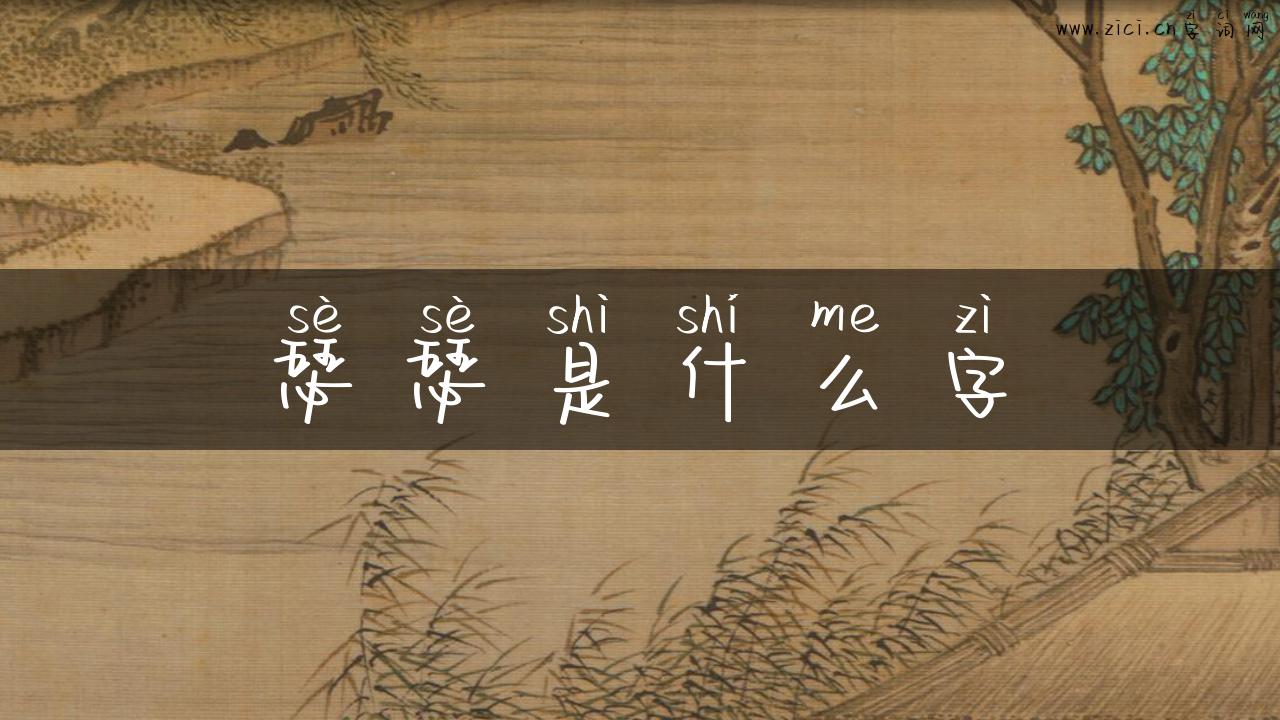 zì cí wǎng
www.zici.cn字词网
sè sè shì shí me zì
瑟瑟是什么字